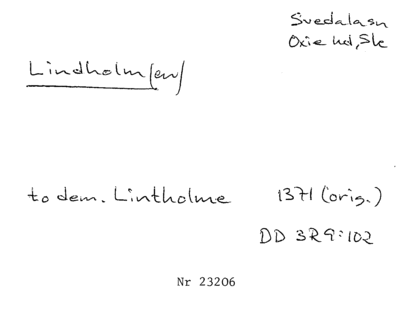 Svedalasn
Oxie hd, Sk
Lindholm(en)
to dem. Lintholme 1371 (orig.)
DD 3R9:102
Nr 23206